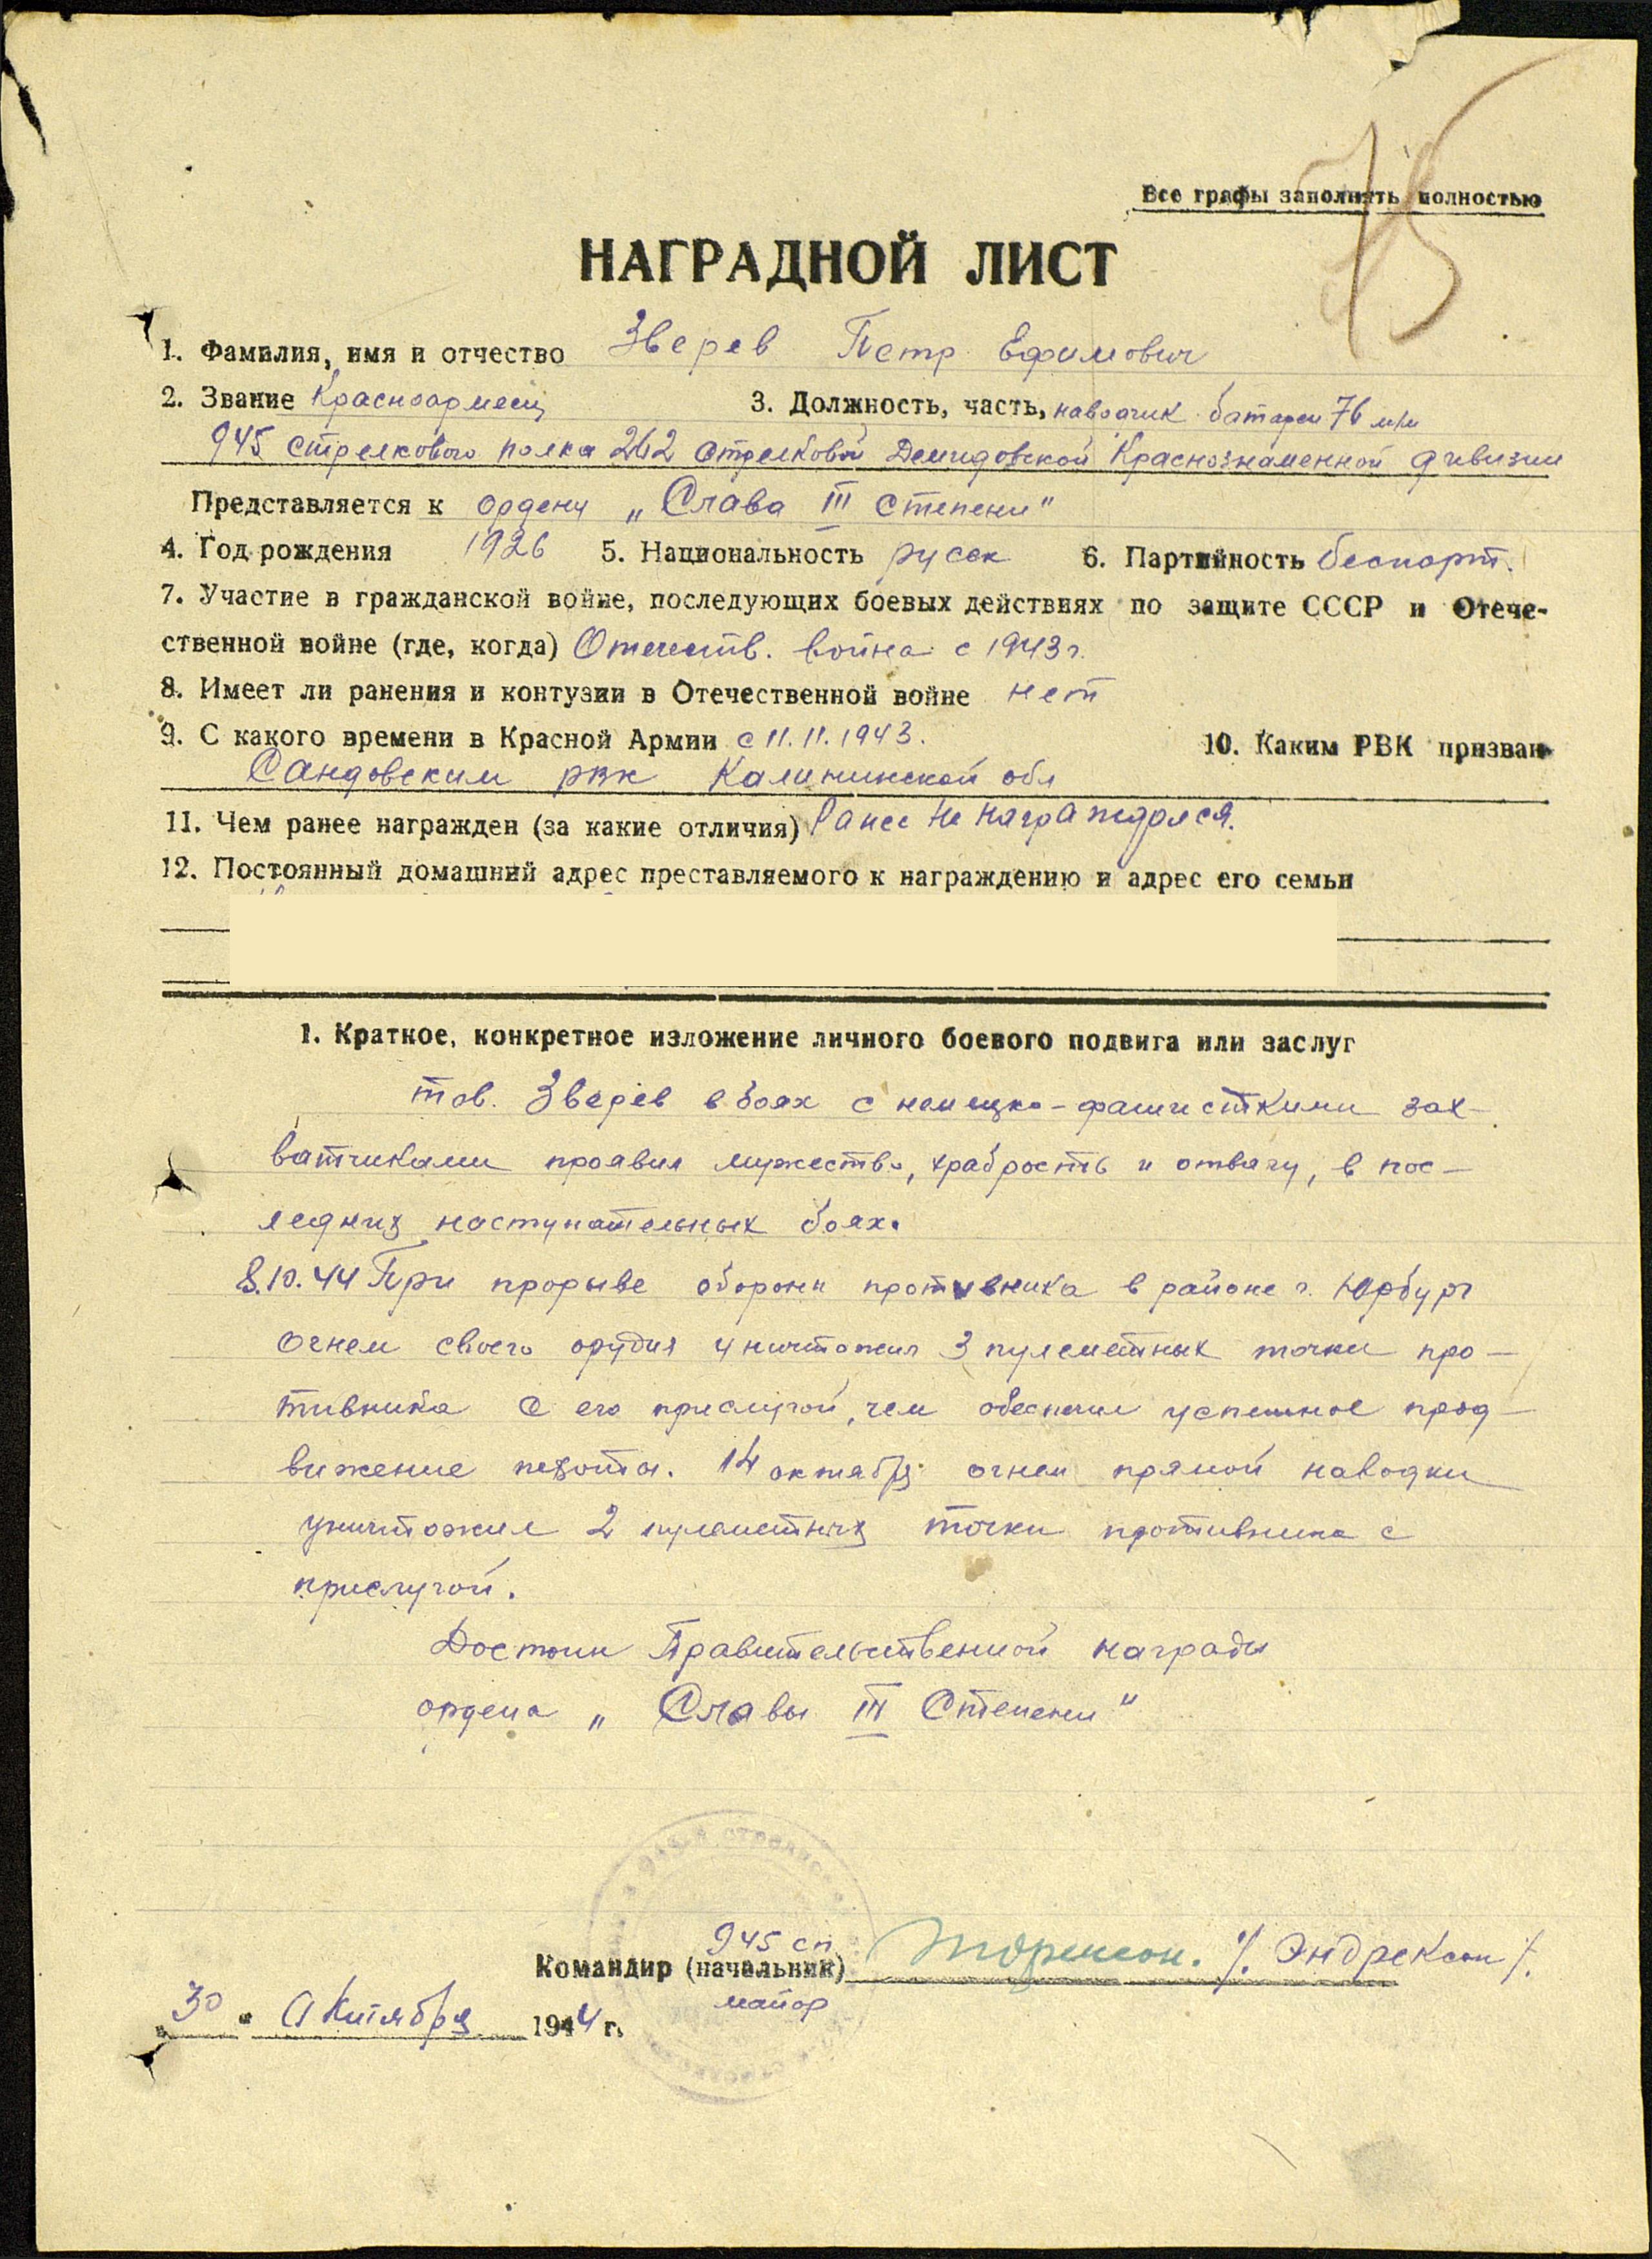 75
Все графы заполнять полностью
НАГРАДНОЙ ЛИСТ
1. Фамилия, имя и отчество Зверев Петр Ефимович
2. Звание Красноармеец 3. Должность, часть, наводчик батареи 76 м/м
945 стрелкового полка 262 стрелковой Демидовской Краснознаменной дивизии
Представляется к ордену „Слава III степени"
4. Год рождения 1926 5. Национальность русск 6. Партийность беспарт.
7. Участие в гражданской войне, последующих боевых действиях по защите СССР и Отече-
ственной войне (где, когда) Отечеств. война с 1943 г.
8. Имеет ли ранения и контузии в Отечественной войне нет
9. С какого времени в Красной Армии с 11.11.1943. 10. Каким РВК призван
Сандовским рвк Калининской обл
11. Чем ранее награжден (за какие отличия) Ранее не награждался.
12. Постоянный домашний адрес преставляемого к награждению и адрес его семьи
1. Краткое, конкретное изложение личного боевого подвига или заслуг
тов. Зверев в боях с немецко-фашисткими зах-
ватчиками проявил мужество, храбрость и отвагу, в пос-
ледних наступательных боях.
8.10.44 При прорыве обороны противника в районе г. Юрбург
огнем своего орудия уничтожил 3 пулеметных точки про-
тивника с его прислугой, чем обеспечил успешное прод-
вижение пехоты. 14 октября огнем прямой наводки
уничтожил 2 пулеметных точки противника с
прислугой.
Достоин Правительственной награды
ордена „Славы III Степени"
945 сп
Командир (начальник) /Эндрексон/.
майор
„30" Октября 1944 г.